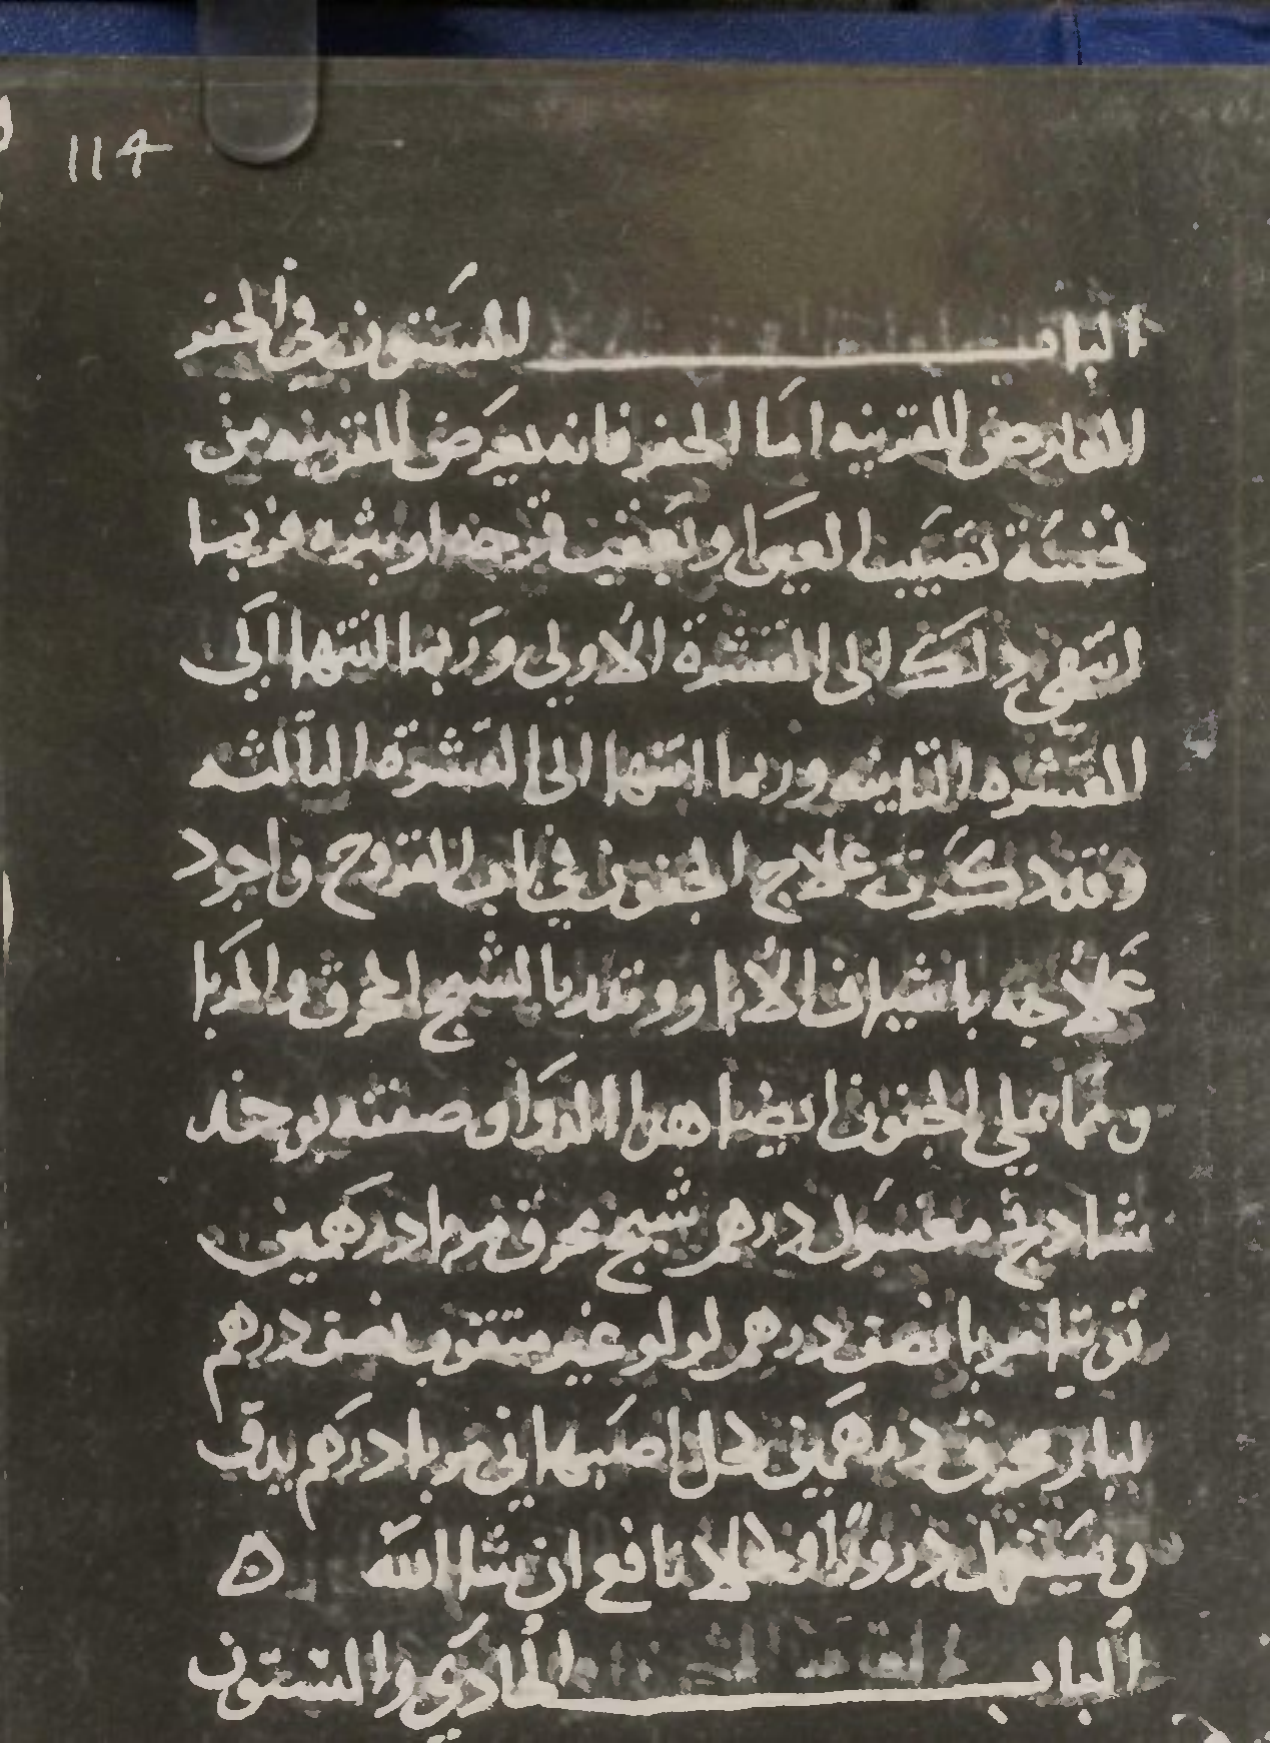 114
الباب الستون في الحفر
العارض للقرنيه اما الحفر فانه يعرض للقرنيه من
نخسة تصيبها وتعقب قرحه او بثره فربما
انتهى ذلك الى القشرة الاولى وربما انتها الى
القشره الثانيه وربما انتها الى القشرة الثالثه
وقد ذكرت علاج الجفون في باب القروح واجود
علاجه باشياف الابار وتقديا لشيح المحرق
ومما عملي الحفون ايضا هدا الدوا وصفته يوخد
شادنج مغسول درهم شيح محرق مربا درهمين
توتيا مربا نصف درهم لولو غير مثقوب نصف درهم
ابار محرق درهمين كحل اصبهاني مربا درهم يدق
ويستعمل درورًا وكحلا نافع ان شا الله ٥
الباب الحادي والستون